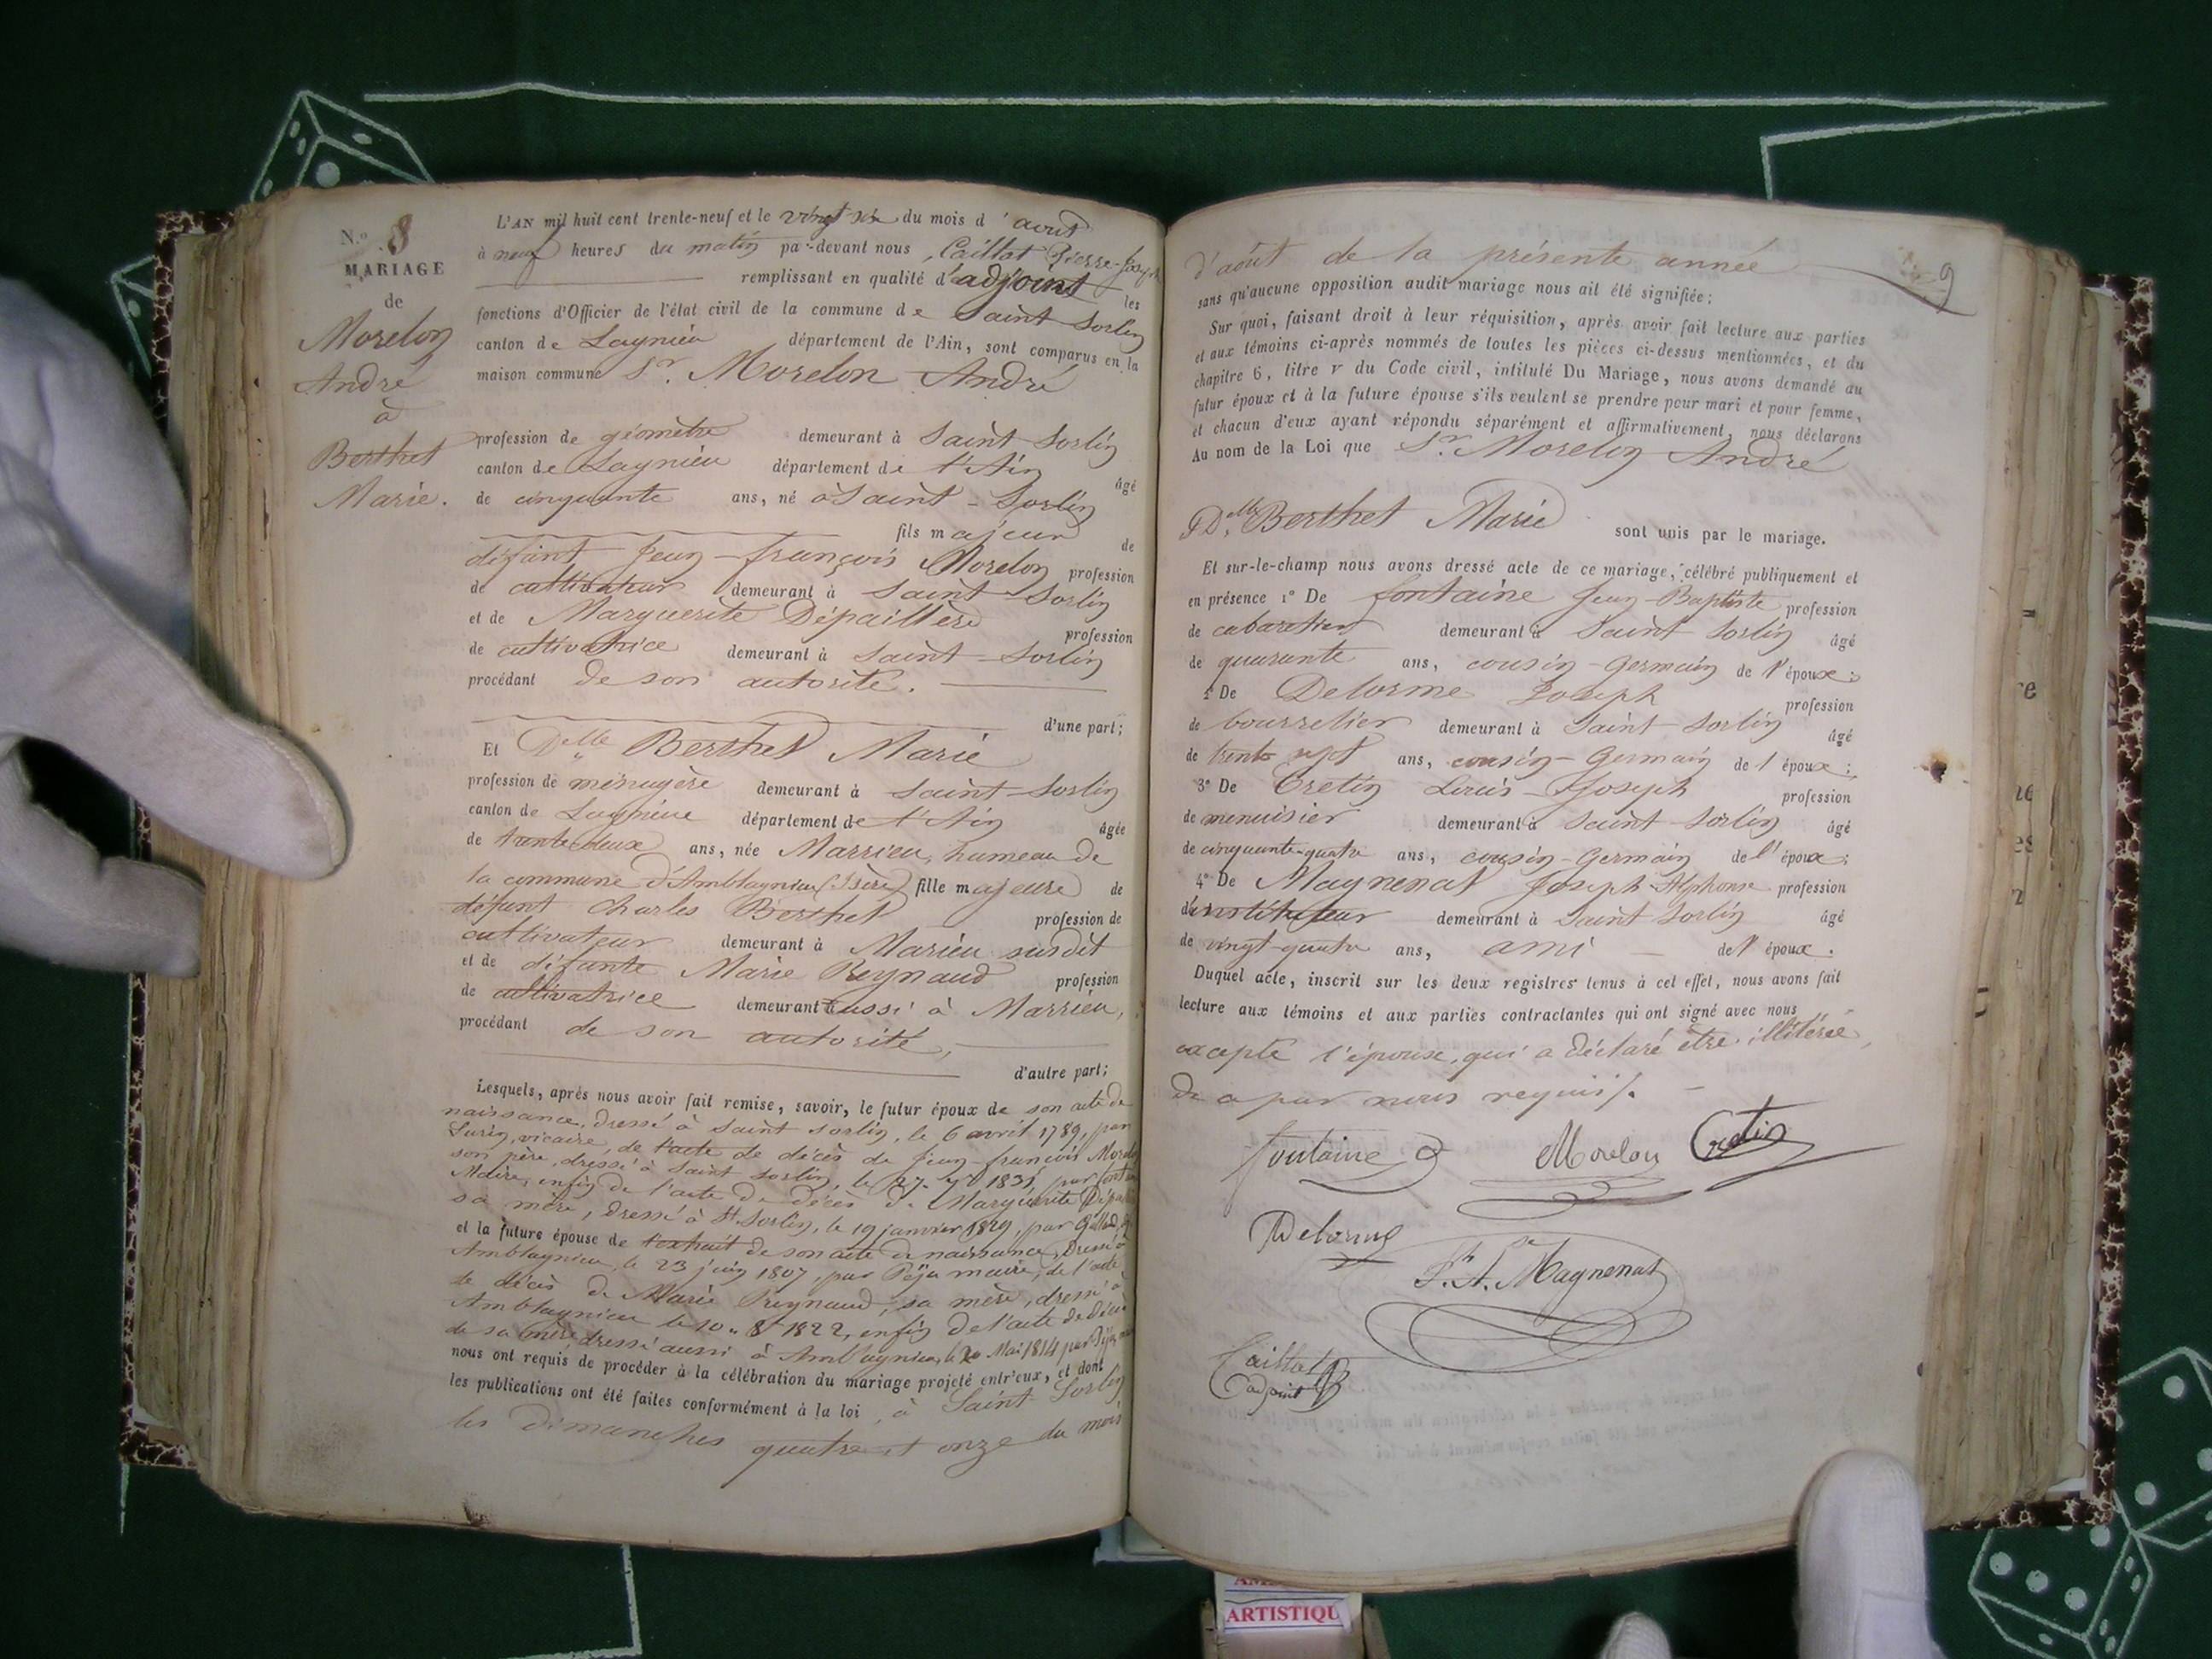 N.º 8
MARIAGE
de
Morelon
André
à
Berthet
Marie.
L'AN mil huit cent trente-neuf et le vingt six du mois d'août
à neuf heures du matin par-devant nous, Caillat Pierre-Joseph
remplissant en qualité d'adjoint les
fonctions d'Officier de l'état civil de la commune de Saint Sorlin
canton de Lagnieu département de l'Ain, sont comparus en la
maison commune Sr. Morelon André
profession de géomètre demeurant à Saint Sorlin
canton de Lagnieu département de l'Ain âgé
de cinquante ans, né à Saint-Sorlin
fils majeur de
défunt Jean-françois Morelon profession
de cultivateur demeurant à Saint Sorlin
et de Marguerite Dépaillère profession
de cultivatrice demeurant à Saint-Sorlin
procédant de son autorité.
d'une part;
Et Delle Berthet Marie
profession de ménagère demeurant à Saint-Sorlin
canton de Lagnieu département de l'Ain âgée
de trente deux ans, née Marrieu, hameau de
la commune d'Amblagnieu (Isère) fille majeure de
défunt Charles Berthet profession de
cultivateur demeurant à Marieu susdit
et de défunte Marie Reynaud profession
de cultivatrice demeurant aussi à Marrieu,
procédant de son autorité,
d'autre part;
Lesquels, après nous avoir fait remise, savoir, le futur époux de son acte de
naissance, dressé à Saint Sorlin, le 6 avril 1789, par
vicaire, de l'acte de décès de Jean-françois
son père, dressé à Saint Sorlin, le 27 1831, par
Maire, enfin de l'acte de décès de Marguerite
sa mère, dressé à St. Sorlin, le 19 janvier 1829, par
et la future épouse de l'extrait de son acte de naissance, dressé à
Amblagnieu, le 23 juin 1807, par Péju maire, de l'acte
de décès de Marie Reynaud, sa mère, dressé à
Amblagnieu le 10 1822, enfin de l'acte de décès
de sa mère dressé aussi à Amblagnieu, le 20 Mai 1814 par
nous ont requis de procéder à la célébration du mariage projeté entr'eux, et dont
les publications ont été faites conformément à la loi, à Saint Sorlin
les dimanches quatre et onze du mois
9
d'août de la présente année
sans qu'aucune opposition audit mariage nous ait été signifiée;
Sur quoi, faisant droit à leur réquisition, après avoir fait lecture aux parties
et aux témoins ci-après nommés de toutes les pièces ci-dessus mentionnées, et du
chapitre 6, titre v du Code civil, intitulé Du Mariage, nous avons demandé au
futur époux et à la future épouse s'ils veulent se prendre pour mari et pour femme,
et chacun d'eux ayant répondu séparément et affirmativement, nous déclarons
Au nom de la Loi que Sr. Morelon André
Delle Berthet Marie sont unis par le mariage.
Et sur-le-champ nous avons dressé acte de ce mariage, célébré publiquement et
en présence 1º De fontaine Jean-Baptiste profession
de cabaretier demeurant à Saint Sorlin âgé
de quarante ans, cousin-Germain de l'époux;
2 De Delorme Joseph profession
de bourrelier demeurant à Saint-Sorlin âgé
de trente sept ans, cousin-Germain de l'époux;
3º De Cretin Louis-Joseph profession
de menuisier demeurant à Saint Sorlin âgé
de cinquante-quatre ans, cousin-Germain de l'époux;
4º De Magnenat Joseph-Alphonse profession
d'instituteur demeurant à Saint Sorlin âgé
de vingt-quatre ans, ami de l'époux.
Duquel acte, inscrit sur les deux registres tenus à cet effet, nous avons fait
lecture aux témoins et aux parties contractantes qui ont signé avec nous
excepté l'épouse, qui a déclaré être illitérée
de ce par nous requis/.
fontaine Morelon Cretin
Delorme
J. A. Magnenat
Caillat
adjoint
ARTISTIQU